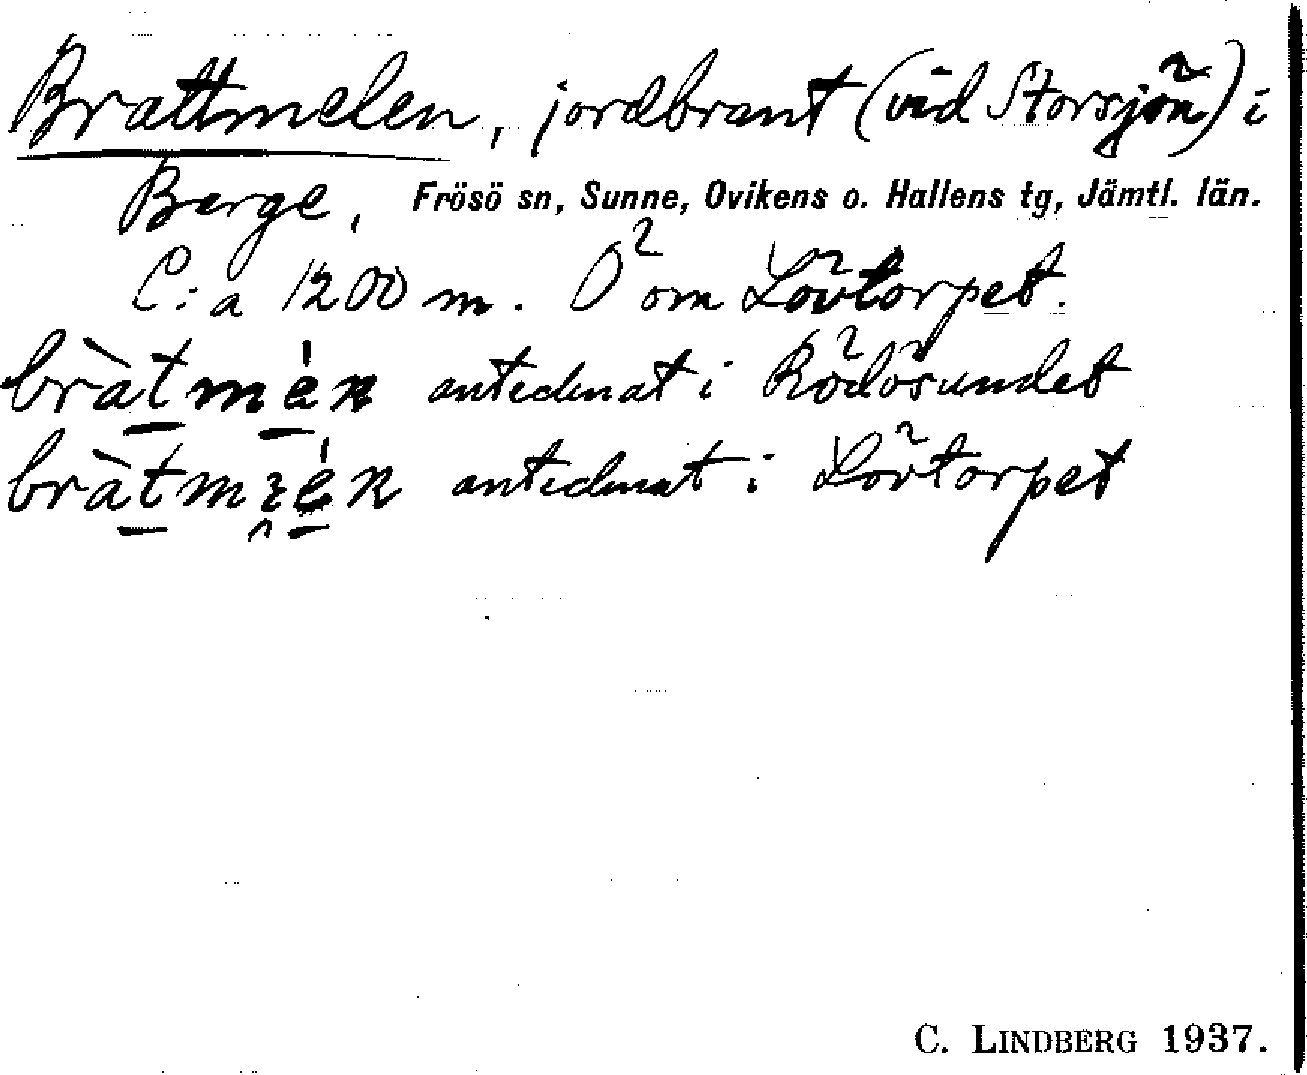 Brattmelen, jordbrant (vid Storsjön) i
Berge, Frösö sn, Sunne, Ovikens o. Hallens tg, Jämtl. län.
C:a 1200 m. Ö om Lövtorpet.
bràtmén antecknat i Rödösundet
bràtmıén antecknat i Lövtorpet
C. LINDBERG 1937.